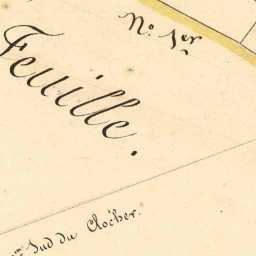 Nº 1er
Feuille.
Sud du Clocher.